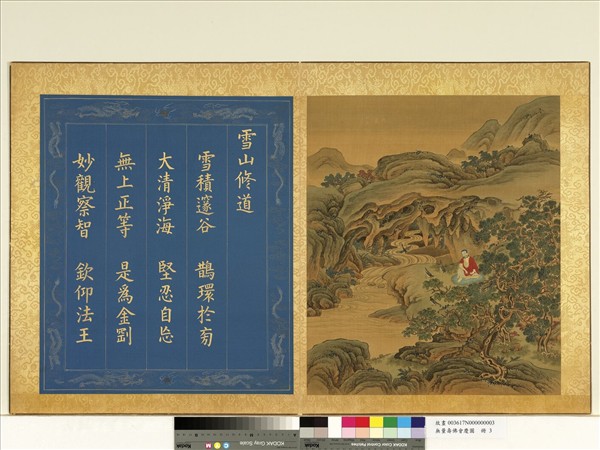 雪山修道
雪積邃谷 鵲環於
大清淨海 堅忍自忘
無上正等 是為金剛
妙觀察智 欽仰法王
KODAK Gray Scale
KODAK Color Control Patches
故畫 003617N000000003
無量壽佛會慶圖 冊 3